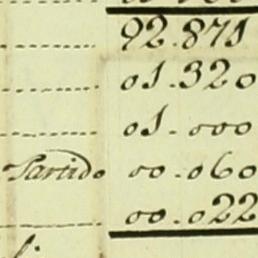 92.871
01.320
01.000
Partido 00.060
00.022